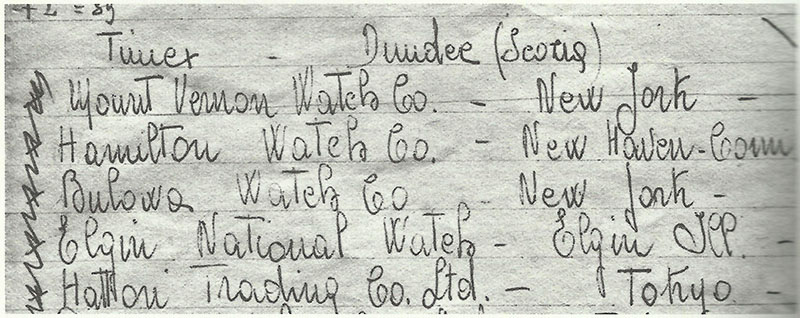 Timex - Dundee (Scotia)
Mount Vernon Watch Co. - New York -
Hamilton Watch Co. - New Haven-Conn
Bulova Watch Co - New York -
Elgin National Watch - Elgin Ill. -
Hattori Trading Co. Ltd. - Tokyo -